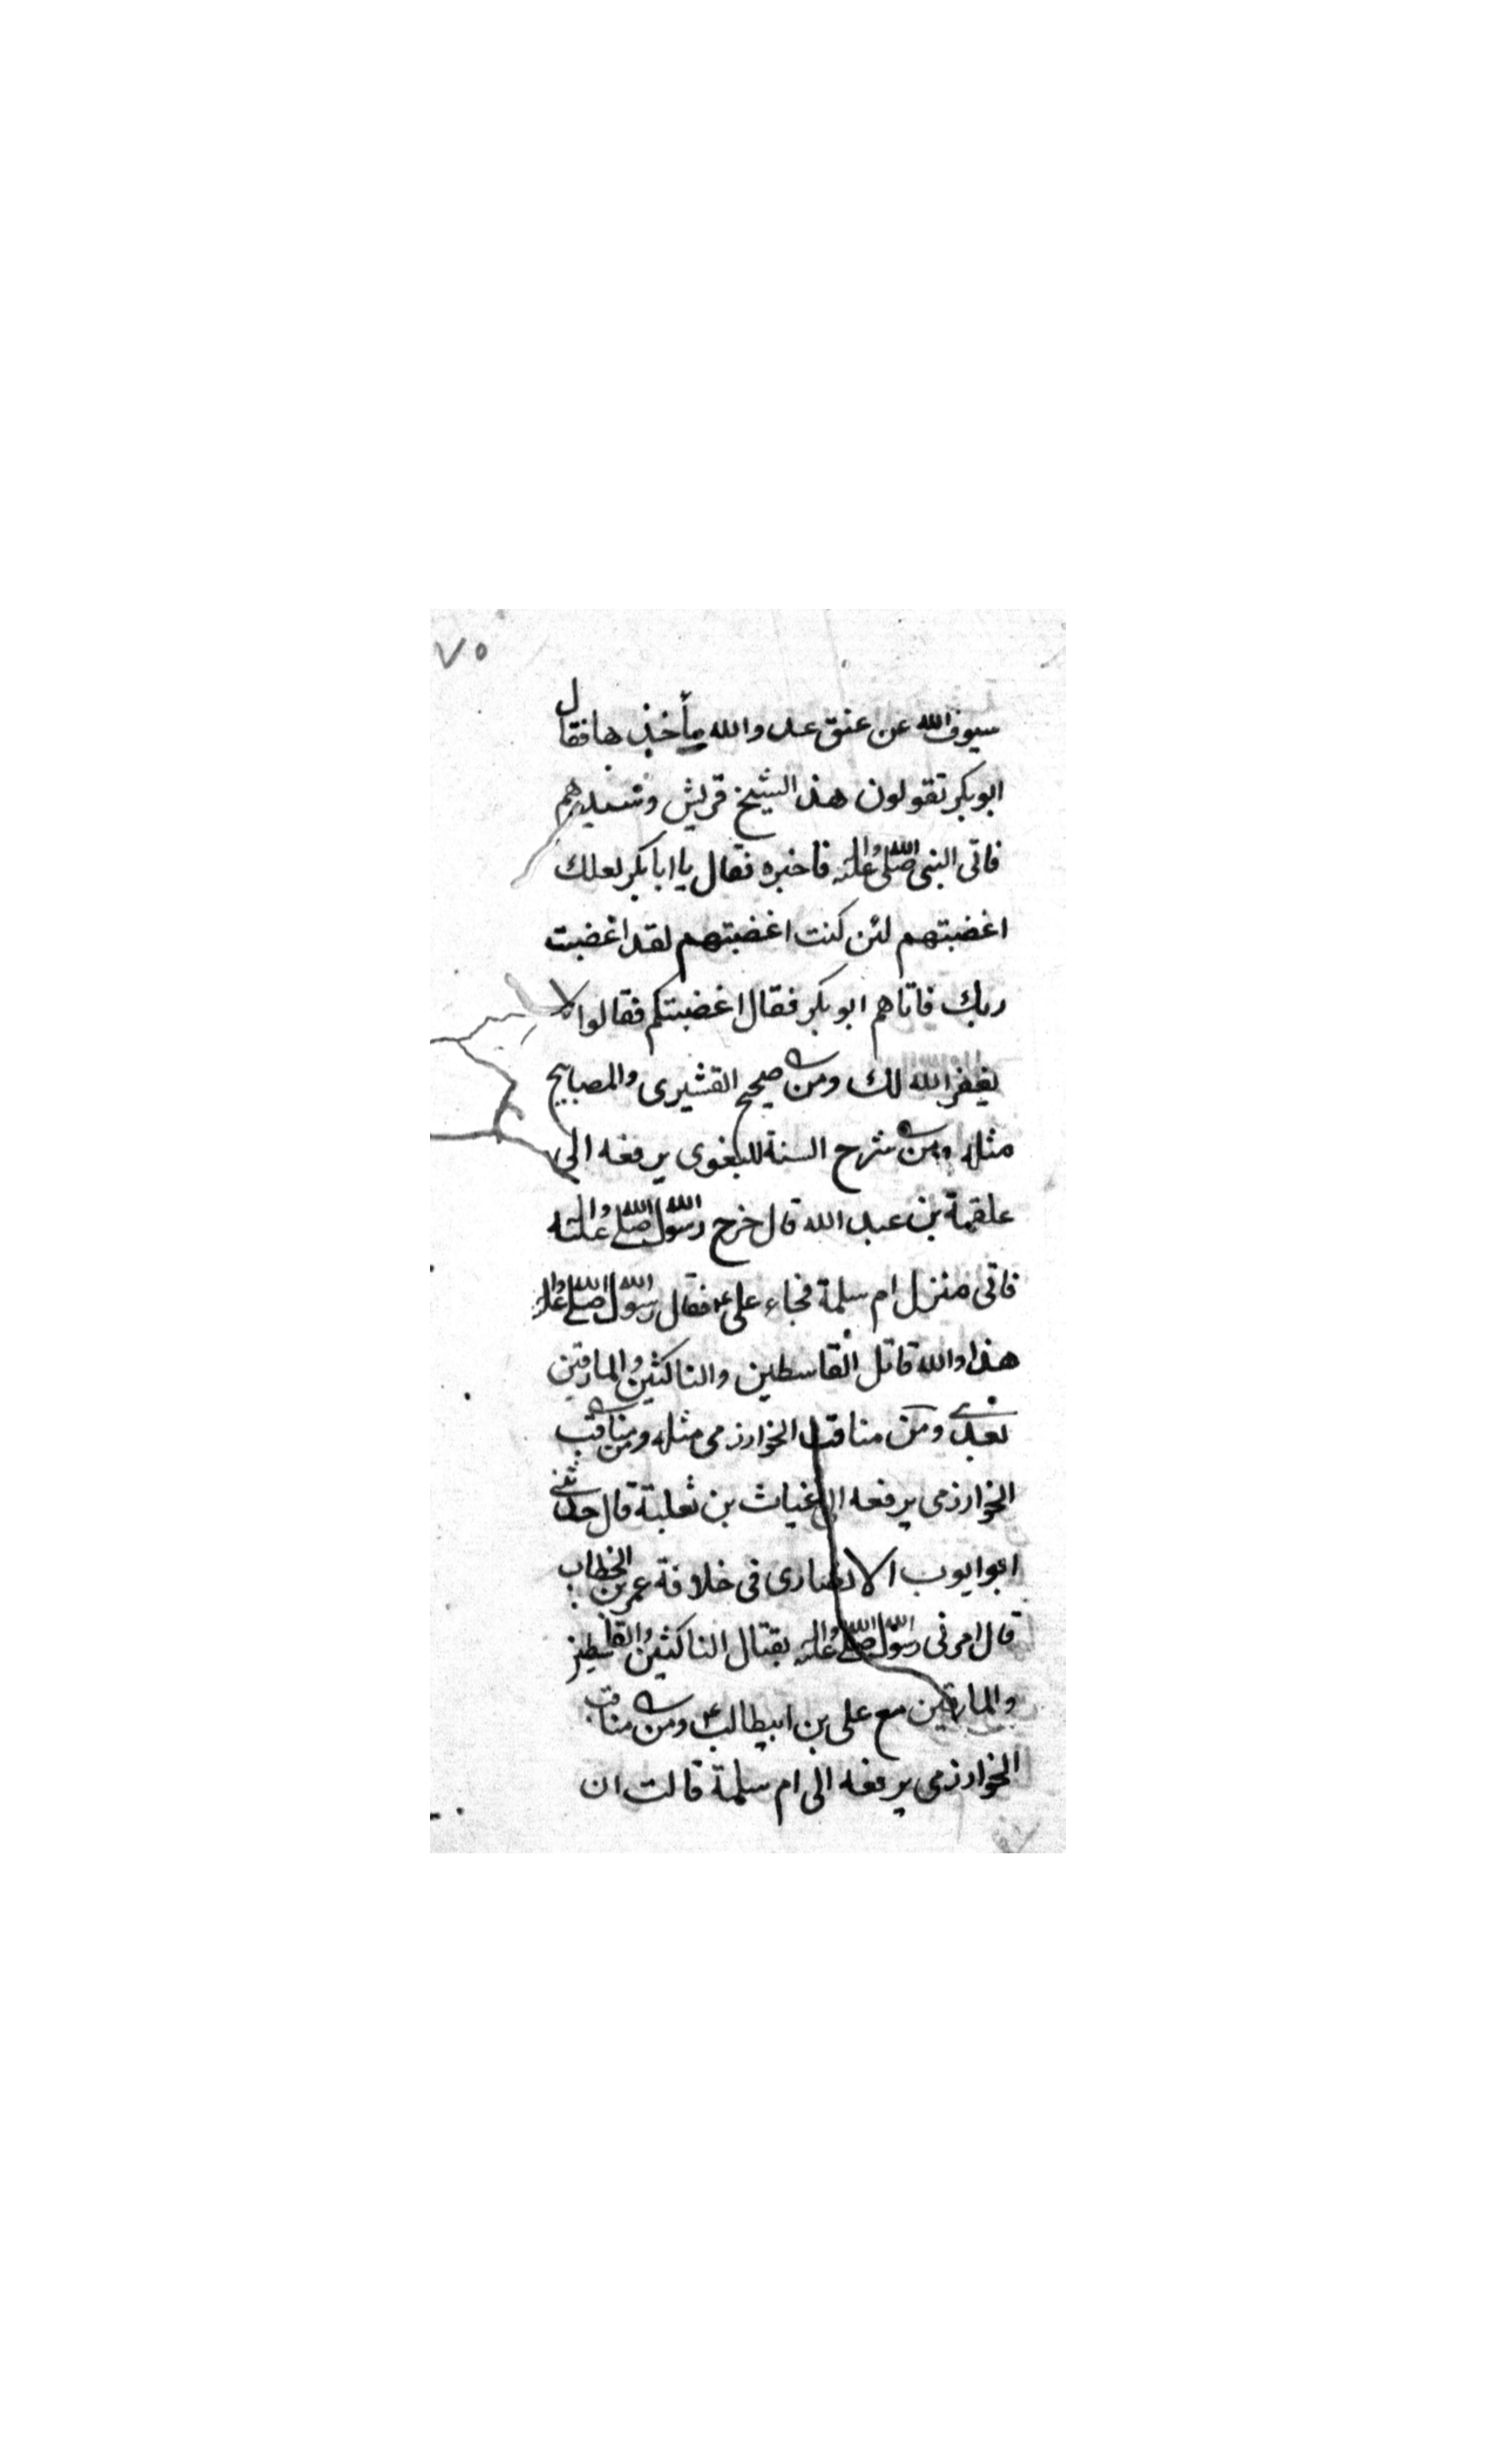 ٧٥
سيوف الله عن عنق عدو الله مأخذها فقال
ابوبكر تقولون هذا لشيخ قريش وسيدهم
فاتى النبى صلى الله عليه واله فاخبره فقال يا ابا بكر لعلك
اغضبتهم لئن كنت اغضبتهم لقد اغضبت
ربك فاتاهم ابو بكر فقال اغضبتكم فقالوا لا
يغفر الله لك ومن صحيح القشيرى والمصابيح
مثله ومن شرح السنة للبغوى يرفعه الى
علقمة بن عبد الله قال خرج رسول الله صلى الله عليه واله
فاتى منزل ام سلمة فجاء على ع فقال رسول الله صلى الله عليه واله
هذا والله قاتل القاسطين والناكثين والمارقين
بعدى ومن مناقب الخوارزمى مثله ومن مناقب
الخوارزمى يرفعه الى غياث بن ثعلبة قال حدثنى
ابو ايوب الانصارى فى خلافة عمر بن الخطاب
قال امرنى رسول الله صلى الله عليه واله بقتال الناكثين والقاسطين
والمارقين مع على بن ابيطالب ع ومن مناقب
الخوارزمى يرفعه الى ام سلمة قالت ان